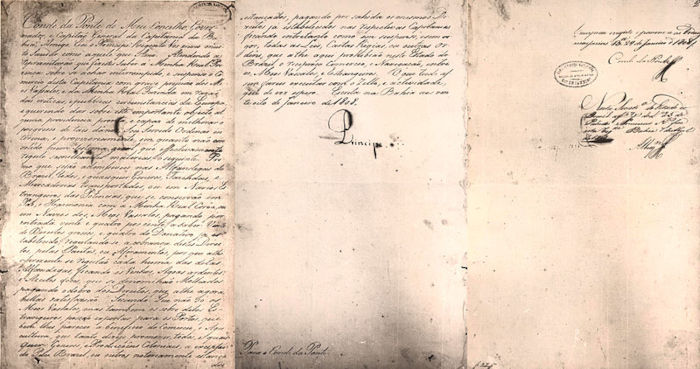 Conde da Ponte do Meu Conselho, Gover
nador, e Capitão General da Capitania da
Bahia, Amigo. Eu o Principe Regente vos envio muito
saudar, como aquelle que Amo. Attendendo a
representação que fizestes subir a Minha Real Pre
sença sobre se achar interrompido, e suspenso o Com
mercio desta Capitania com grave prejuizo dos Meus
Vassallos, e da Minha Real Fazenda em razão
das criticas, e publicas circunstancias da Europa, e
querendo dar sobre este importante objecto al
guma providencia prompta, e capaz de melhorar o
progresso de taes damnos: Sou Servido Ordenar in
terina, e provisoriamente, em quanto não con
solido hum Systema geral, que effectivamente
regule semelhantes materias, o seguinte. Pri
mo: que sejão admissiveis nas Alfandegas do
Brazil todos, e quaesquer Generos, Fazendas, e
Mercadorias transportadas, ou em Navios Es
trangeiros das Potencias, que se conservão em
Paz, e Harmonia com a Minha Real Coroa, ou
em Navios dos Meus Vassallos, pagando por
entrada vinte e quatro por cento; a saber Vinte
de Direitos grossos, e quatro do Donativo ja es
tabelecido, regulando-se a cobrança destes Direi
tos pelas Pautas, ou Aforamentos, por que athe
o prezente se regulão cada huma das ditas
Alfandegas, ficando os Vinhos, Agoas ardentes,
e Azeites doces, que se denominão Molhados
pagando o dobro dos Direitos, que athe agora
nellas satisfazião. Secundo: Que não só os
Meus Vassallos, mas tambem os sobreditos Es
trangeiros possão exportar para os Portos, que
bem lhes parecer a beneficio do Commercio, e Agri
cultura, que tanto dezejo promover, todos, e quaes
quer Generos, e Producções Coloniaes, a excepção
do Páo Brazil, ou outros notoriamente estanca
dos
estancados, pagando por sahida os mesmos Di
reitos ja estabelecidos nas respectivas Capitanias
ficando entretanto como em suspenso, e sem vi
gor, todas as Leis, Cartas Regias, ou outras Or
dens, que athe aqui prohibião neste Estado do
Brazil o reciproco Commercio, e Navegação entre
os Meus Vassallos, e Estrangeiros. O que tudo as
sim fareis executar com o Zello, e actividade,
que de vos espero. Escrita na Bahia aos vin
te oito de Janeiro de 1808.
Principe
Para o Conde da Ponte